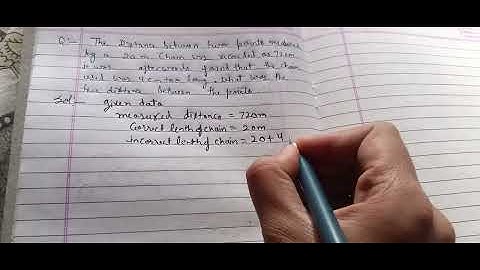 Q:- The Distance between two points measured
by a 20m Chain was recorded as 720m
It was afterwards found that the chain
used was 4 cm too long, what was the
true distance between the points
Sol:- given data
measured distance = 720m
Correct lenth of chain = 20m
Incorrect lenth of chain = 20 + 4